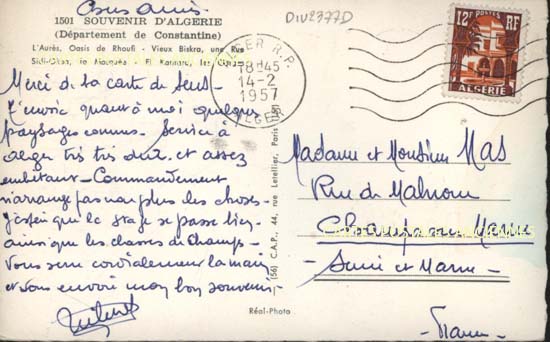 Chers amis
DIV2377D
1501 SOUVENIR D'ALGERIE
(Département de Constantine)
L'Aurès, Oasis de Rhoufi - Vieux Biskra, une Rue
Sidi-Okba, la Mosquée - El Kantara, les Gorges
ALGER R.P.
18H45
14-2
1957
ALGER
12F POSTES RF
ALGERIE
Merci de la carte de Sens.
J'envoie quant à moi quelques
paysages connus. Service à
Alger très très dur et assez
embêtant - Commandement
n'arrange pas non plus les choses.
J'espère que le stage se passe bien
ainsi que les chasses de Champs -
Vous serre cordialement la main
et vous envoie mon bon souvenir -
Madame et Monsieur MAS
Rue de Malnoue
Champs sur Marne
- Seine et Marne -
- France -
(56) C.A.P., 44, rue Letellier, Paris
Réal-Photo